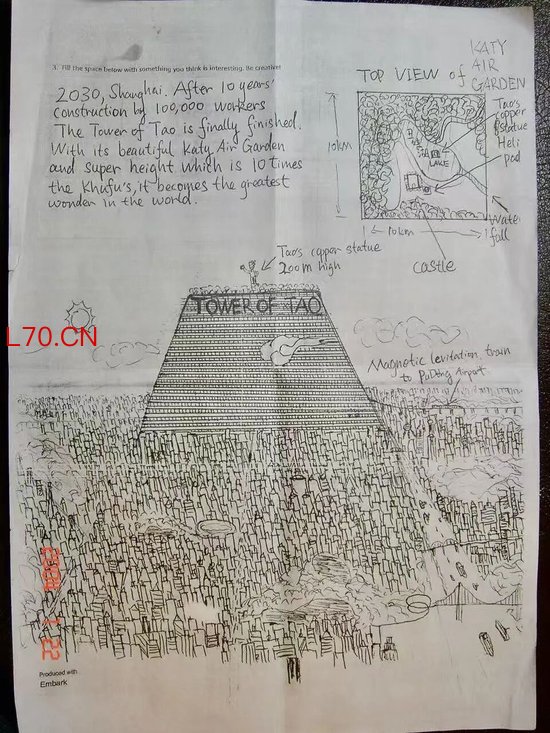 3. Fill the space below with something you think is interesting. Be creative!
2030, Shanghai. After 10 years'
construction by 100,000 workers
The Tower of Tao is finally finished.
With its beautiful Katy Air Garden
and super height which is 10 times
the Khufu's, it becomes the greatest
wonder in the world.
TOP VIEW of KATY
AIR
GARDEN
10km
10km
LAKE
Tao's
copper
statue
Heli
pad
Water
fall
castle
Tao's copper statue
200m high
TOWER OF TAO
L70.CN
Magnetic levitation train
to PuDong Airport
Produced with
Embark